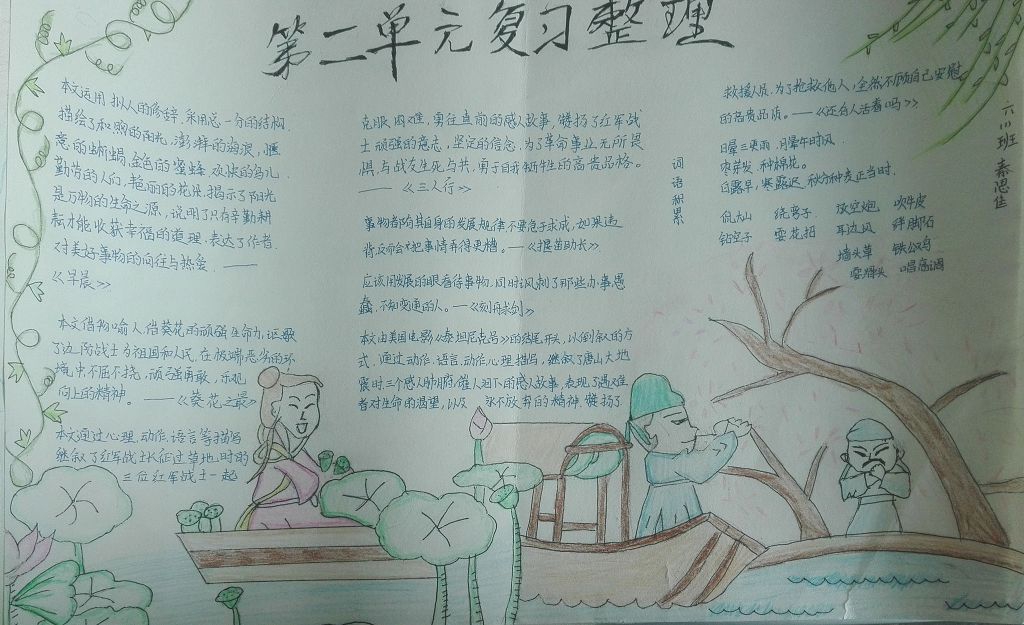 第二单元复习整理
本文运用拟人的修辞,采用总一分的结构.
描绘了和煦的阳光,澎拜的海浪,惬
意的蜥蜴,金色的蜜蜂 欢快的鸟儿.
勤劳的人们,艳丽的花朵,揭示了阳光
是万物的生命之源,说明了只有辛勤耕
耘才能收获幸福的道理,表达了作者
对美好事物的向往与热爱.——
《早晨》
本文借物喻人,借葵花的顽强生命力,讴歌
了边防战士为祖国和人民,在极端恶劣的环
境中不屈不挠,顽强勇敢,乐观
向上的精神。——《葵花之最》
本文通过心理,动作,语言等描写
继叙了红军战士长征过草地时的
三位红军战士一起
克服困难,勇往直前的感人故事,赞扬了红军战
士顽强的意志,坚定的信念,为了革命事业无所畏
惧,与战友生死与共,勇于自我牺牲的高贵品格。
——《三人行》
事物都有其自身的发展规律,不要急于求成,如果违
背反而会把事情弄得更糟。——《揠苗助长》
应该用发展的眼看待事物,同时讽刺了那些办事愚
蠢,不知变通的人。——《刻舟求剑》
本文由美国电影《泰坦尼克号》的结尾开头,以倒叙的方
式,通过动作,语言,动作,心理描写,继叙了唐山大地
震时三个感人肺腑,催人泪下的感人故事,表现了遇难
者对生命的渴望,以及 永不放弃的精神.赞扬了
救援人员,为了抢救他人,全然不顾自己安慰
的高贵品质。——《还有人活着吗》
词语积累
日晕三更雨,月晕午时风.
枣芽发,种棉花。
白露早,寒露迟,秋分种麦正当时.
侃大山 绕弯子 放空炮 吹牛皮
钻空子 耍花招 耳边风 绊脚石
墙头草 铁公鸡
耍滑头 唱高调
六(1)班 秦思佳